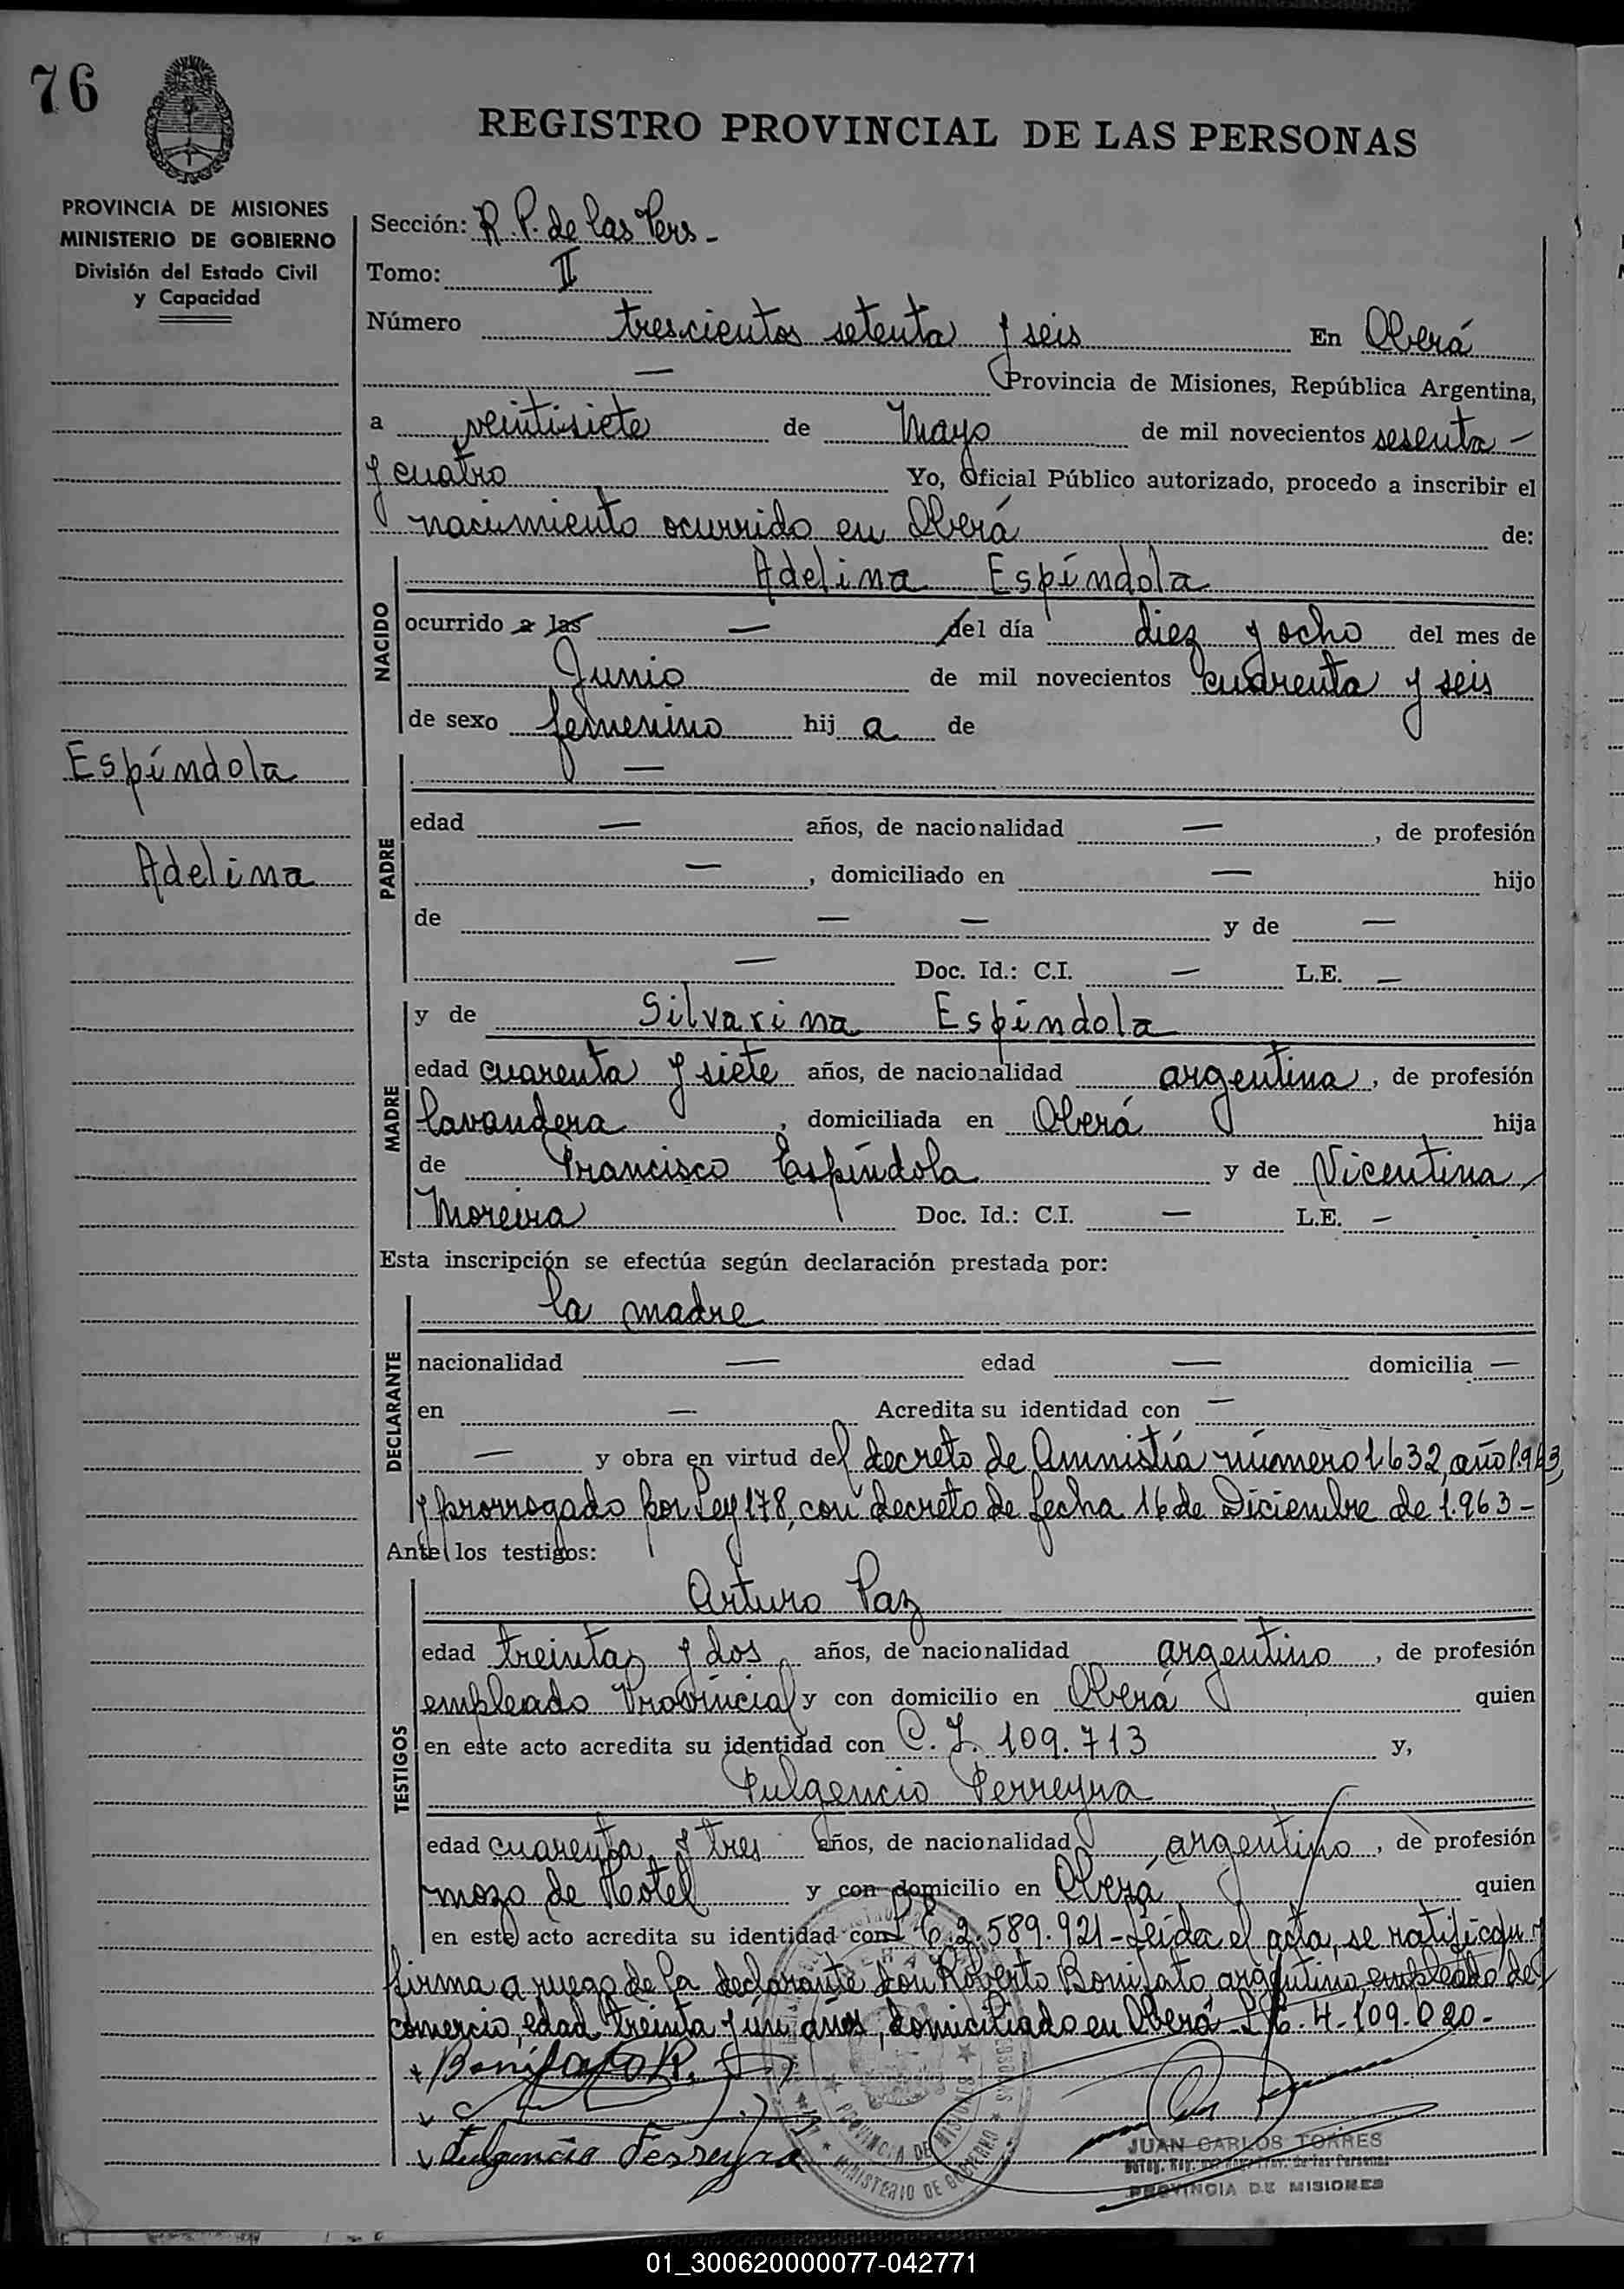 76
REGISTRO PROVINCIAL DE LAS PERSONAS
PROVINCIA DE MISIONES
MINISTERIO DE GOBIERNO
División del Estado Civil
y Capacidad
Sección: R. P. de las Pers -
Tomo: II
Número trescientos setenta y seis En Oberá
— Provincia de Misiones, República Argentina,
a veintisiete de Mayo de mil novecientos sesenta —
y cuatro Yo, Oficial Público autorizado, procedo a inscribir el
nacimiento ocurrido en Oberá de:
NACIDO
Adelina Espíndola
ocurrido a las — del día diez y ocho del mes de
Junio de mil novecientos cuarenta y seis
de sexo femenino hij a de
Espíndola
Adelina
PADRE
—
edad — años, de nacionalidad — , de profesión
— , domiciliado en — hijo
de — — y de —
— Doc. Id.: C.I. — L.E. —
MADRE
y de Silvarina Espíndola
edad cuarenta y siete años, de nacionalidad argentina , de profesión
lavandera , domiciliada en Oberá hija
de Francisco Espíndola y de Vicentina
Moreira Doc. Id.: C.I. — L.E. —
Esta inscripción se efectúa según declaración prestada por:
DECLARANTE
la madre
nacionalidad — edad — domicilia —
en — Acredita su identidad con —
— y obra en virtud del decreto de Amnistía número 1632, año 1.963,
y prorrogado por Ley 178, con decreto de fecha 16 de Diciembre de 1.963 -
Ante los testigos:
TESTIGOS
Arturo Paz
edad treinta y dos años, de nacionalidad argentino , de profesión
empleado Provincial y con domicilio en Oberá quien
en este acto acredita su identidad con C. I. 109.713 y,
Fulgencio Ferreyra
edad cuarenta y tres años, de nacionalidad argentino , de profesión
mozo de Hotel y con domicilio en Oberá quien
en este acto acredita su identidad con L.E. 2.589.921 - Leída el acta, se ratifican y
firma a ruego de la declarante don Roberto Bonifato, argentino, empleado de
comercio, edad treinta y un años, domiciliado en Oberá L.E. 4.109.020.-
Bonifato R.
Fulgencio Ferreyra
PROVINCIA DE MISIONES
MINISTERIO DE GOBIERNO
JUAN CARLOS TORRES
PROVINCIA DE MISIONES
01_300620000077-042771